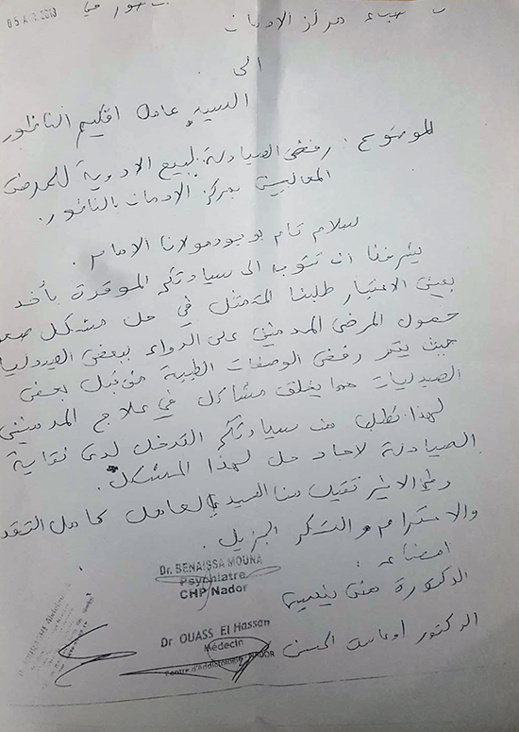 05 A 2018
مركز الادمان
الى
السيد عامل اقليم الناظور
الموضوع : رفض الصيادلة لبيع الادوية للمرضى
المعالجين بمركز الادمان بالناظور.
سلام تام بوجود مولانا الامام.
يشرفنا ان نتوجه الى سيادتكم الموقرة بأخد
بعين الاعتبار طلبنا المتمثل في حل مشكل
حصول المرضى المدمنين على الدواء ببعض
حيث يتم رفض الوصفات الطبية من قبل بعض
الصيدليات مما يخلق مشاكل في علاج المدمنين
لهذا نطلب من سيادتكم التدخل لدى نقابة
الصيادلة لاجاد حل لهذا المشكل.
وفي الاخير تقبل منا السيد العامل كامل
والاحترام والشكر الجزيل.
امضاء :
Dr. BENAISSA MOUNA
Psychiatre
CHP Nador
الدكتورة منى بنعيسى
Dr. OUASS El Hassan
Médecin
Centre d'addictologie NADOR
الدكتور اوعاس الحسن